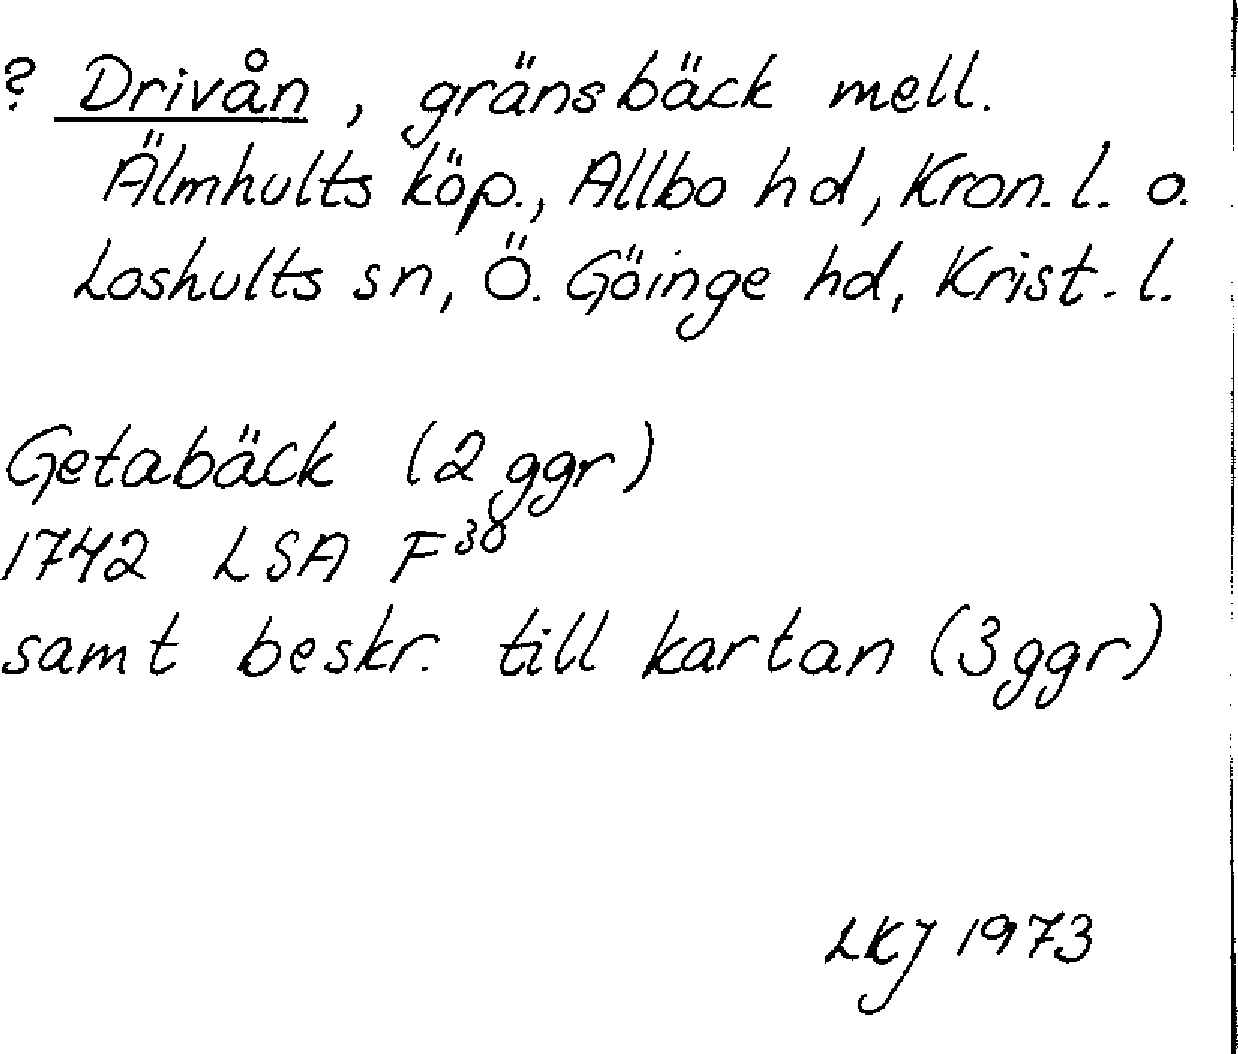 ? Drivån, gränsbäck mell.
Älmhults köp., Allbo hd, Kron. l. o.
Loshults sn, Ö. Göinge hd, Krist. l.
Getabäck (2 ggr)
1742 LSA F³⁰
samt beskr. till kartan (3 ggr)
LKJ 1973